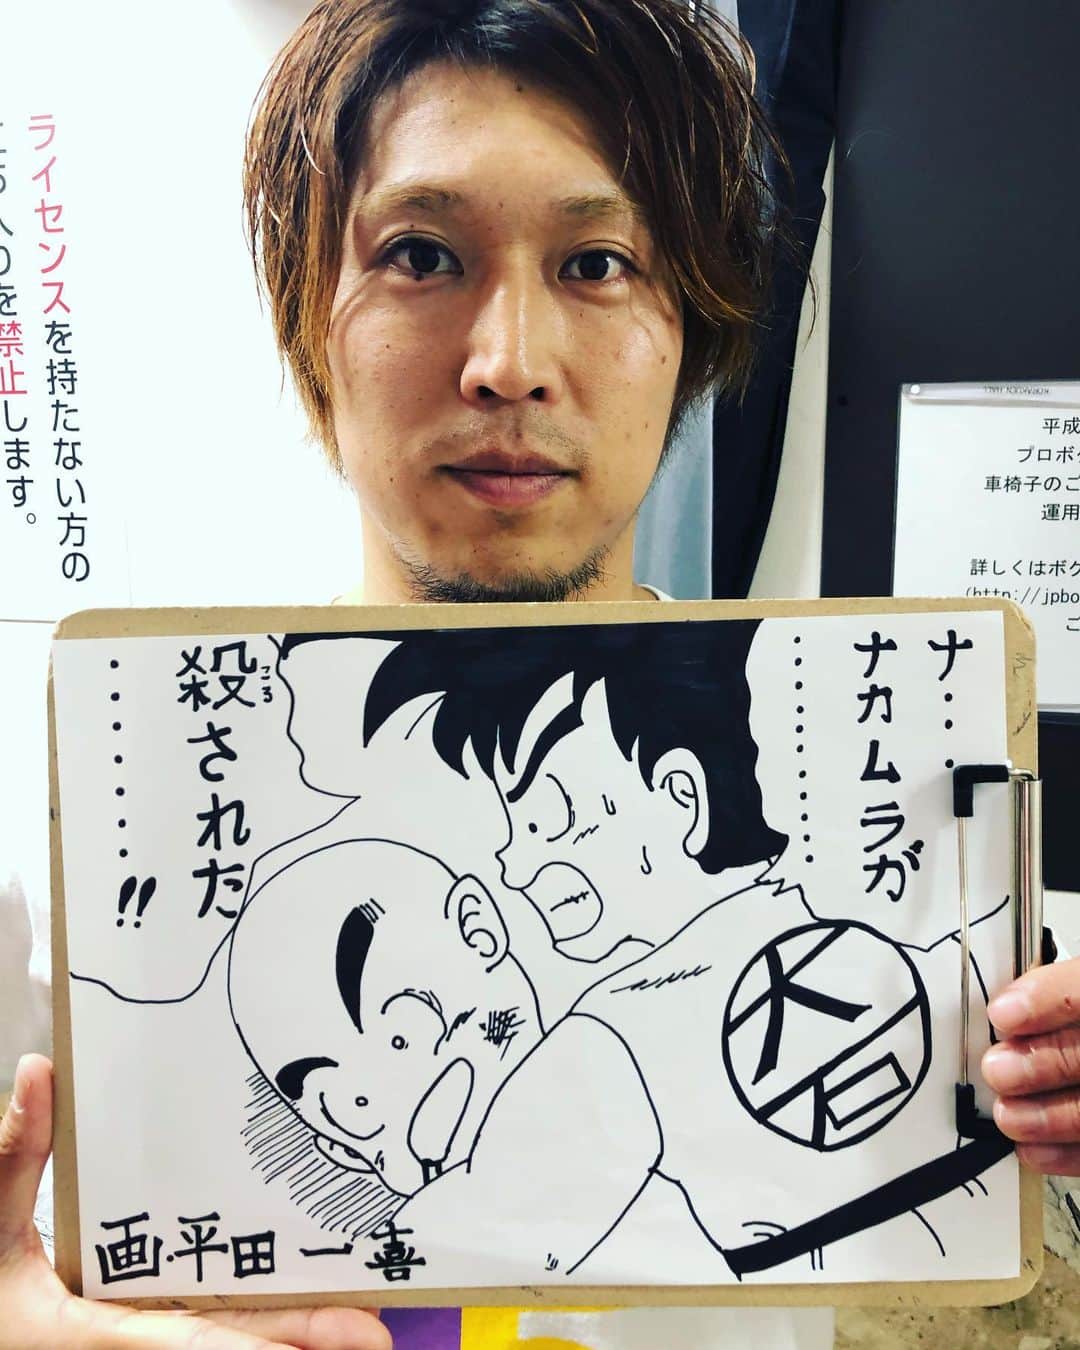 ライセンスを持たない方の
禁止します。
KORAKUEN HALL
平成
プロボク
車椅子のご
運用
詳しくはボク
(http://jpbo
ご
ナ・・・・
ナカムラガ
・・・・・・・・・・
殺された
ころ
・・・・・・・!!
大石
画・平田一喜